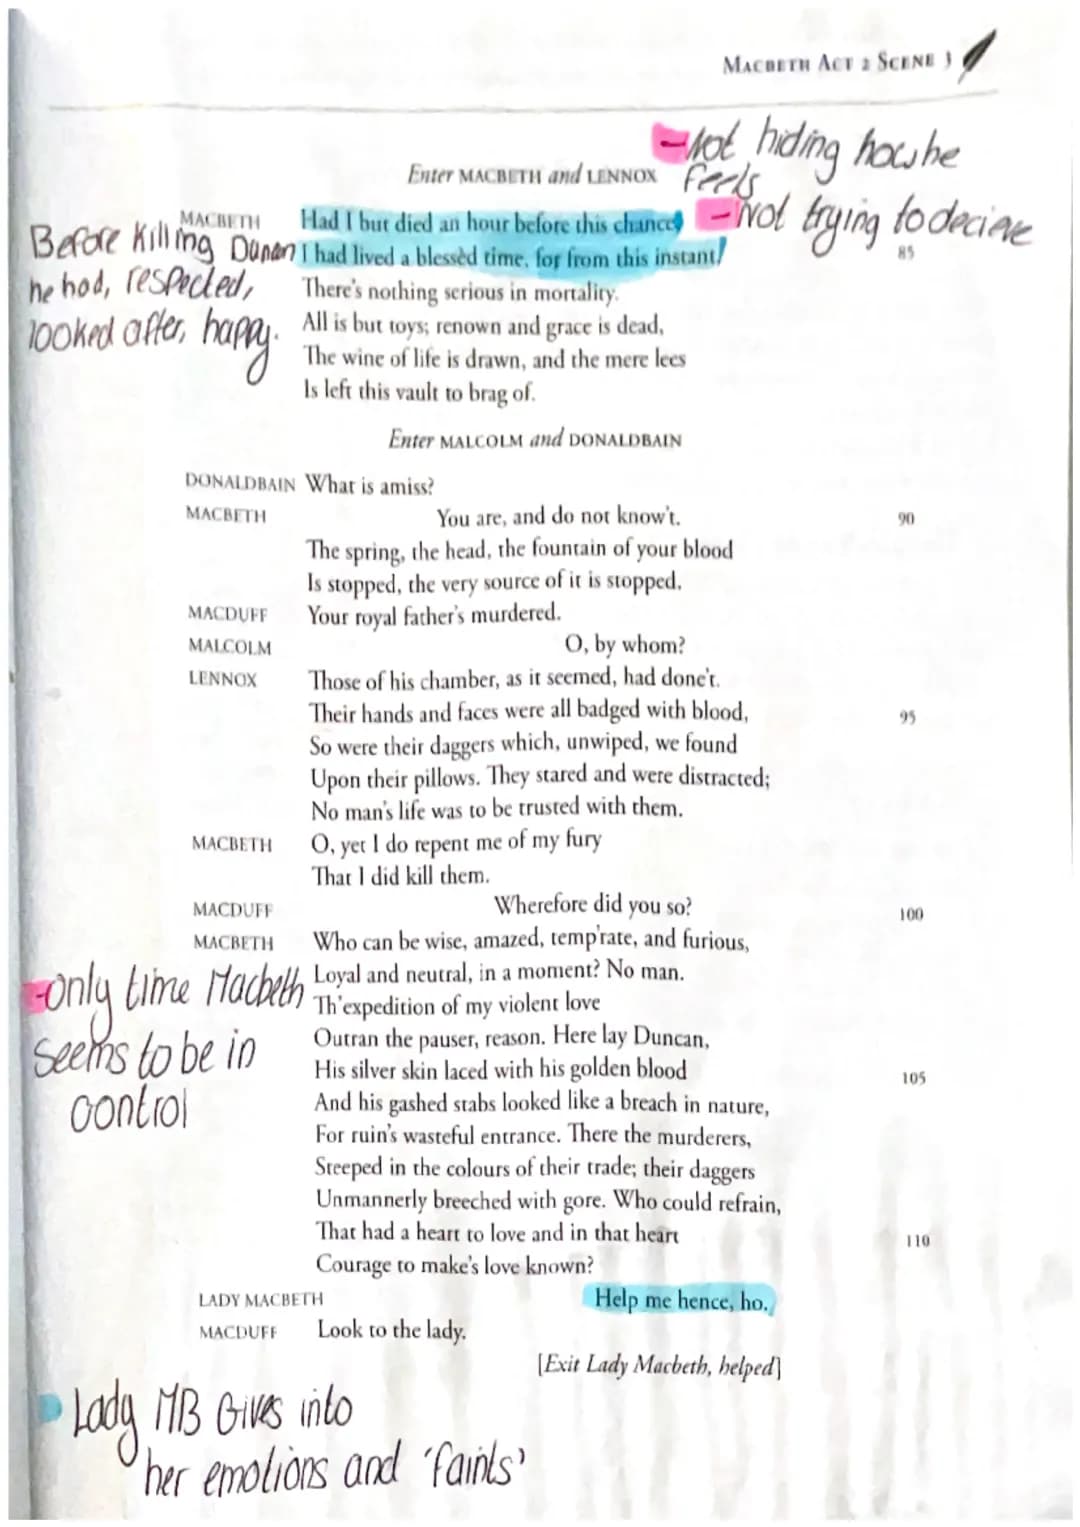 MACBETH ACT 2 SCENE 3
-Not hiding how he
feels
-Not trying to decieve
Enter MACBETH and LENNOX
Before Killing Dunan
he had, respected,
looked after, happy.
MACBETH Had I but died an hour before this chance,
I had lived a blessèd time, for from this instant,
85
There's nothing serious in mortality.
All is but toys; renown and grace is dead,
The wine of life is drawn, and the mere lees
Is left this vault to brag of.
Enter MALCOLM and DONALDBAIN
DONALDBAIN What is amiss?
MACBETH You are, and do not know't. 90
The spring, the head, the fountain of your blood
Is stopped, the very source of it is stopped.
MACDUFF Your royal father's murdered.
MALCOLM O, by whom?
LENNOX Those of his chamber, as it seemed, had done't.
Their hands and faces were all badged with blood, 95
So were their daggers which, unwiped, we found
Upon their pillows. They stared and were distracted;
No man's life was to be trusted with them.
MACBETH O, yet I do repent me of my fury
That I did kill them.
MACDUFF Wherefore did you so? 100
MACBETH Who can be wise, amazed, temp'rate, and furious,
Loyal and neutral, in a moment? No man.
Th'expedition of my violent love
Outran the pauser, reason. Here lay Duncan,
His silver skin laced with his golden blood 105
And his gashed stabs looked like a breach in nature,
For ruin's wasteful entrance. There the murderers,
Steeped in the colours of their trade; their daggers
Unmannerly breeched with gore. Who could refrain,
That had a heart to love and in that heart 110
Courage to make's love known?
-only time Macbeth
seems to be in
control
LADY MACBETH Help me hence, ho.
MACDUFF Look to the lady.
[Exit Lady Macbeth, helped]
Lady MB Gives into
her emotions and 'faints'